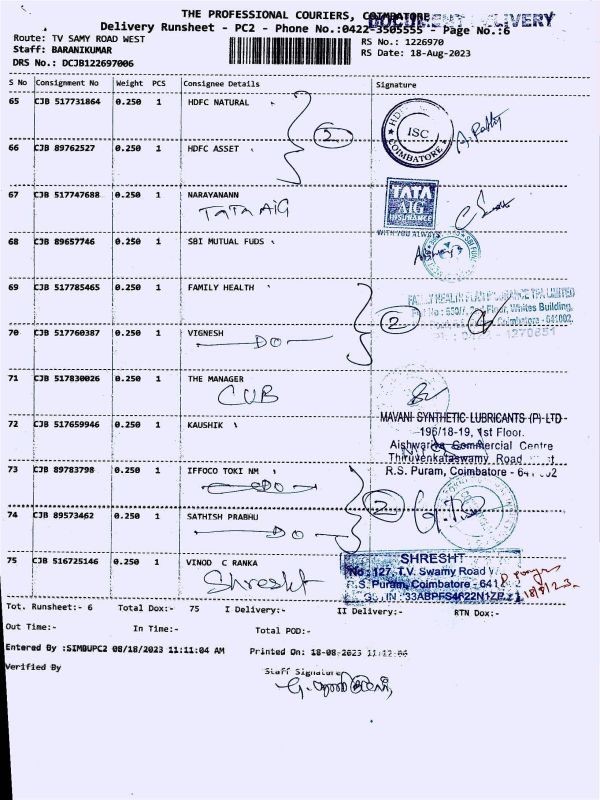 THE PROFESSIONAL COURIERS, COIMBATORE
DOCUMENT DELIVERY
Delivery Runsheet - PC2 - Phone No.:0422-3505555 - Page No.:6
Route: TV SAMY ROAD WEST
RS No.: 1226970
Staff: BARANIKUMAR
RS Date: 18-Aug-2023
DRS No.: DCJB122697006
S No Consignment No Weight PCS Consignee Details Signature
65 CJB 517731864 0.250 1 HDFC NATURAL
2
ISC
COIMBATORE
66 CJB 89762527 0.250 1 HDFC ASSET
67 CJB 517747688 0.250 1 NARAYANANN
TATA AIG
TATA
AIG
INSURANCE
WITH YOU ALWAYS
68 CJB 89657746 0.250 1 SBI MUTUAL FUDS
69 CJB 517785465 0.250 1 FAMILY HEALTH
FAMILY HEALTH PLAN INSURANCE TPA LIMITED
Floor, Whites Building,
Coimbatore - 641002.
2
70 CJB 517760387 0.250 1 VIGNESH
DO
71 CJB 517830026 0.250 1 THE MANAGER
CUB
72 CJB 517659946 0.250 1 KAUSHIK
MAVANI SYNTHETIC LUBRICANTS (P) LTD
196/18-19, 1st Floor.
Aishwarya Commercial Centre
Thiruvenkataswamy Road
R.S. Puram, Coimbatore -
73 CJB 89783798 0.250 1 IFFOCO TOKI NM
DO
2
74 CJB 89573462 0.250 1 SATHISH PRABHU
DO
75 CJB 516725146 0.250 1 VINOD C RANKA
Shresht
SHRESHT
No: 127, T.V. Swamy Road
R.S. Puram, Coimbatore - 641
GSTIN : 33ABPFS4622N1ZP
18/8/23
Tot. Runsheet:- 6 Total Dox:- 75 I Delivery:- II Delivery:- RTN Dox:-
Out Time:- In Time:- Total POD:-
Entered By :SIMBUPC2 08/18/2023 11:11:04 AM Printed On: 18-08-2023 11:12:06
Verified By
Staff Signature